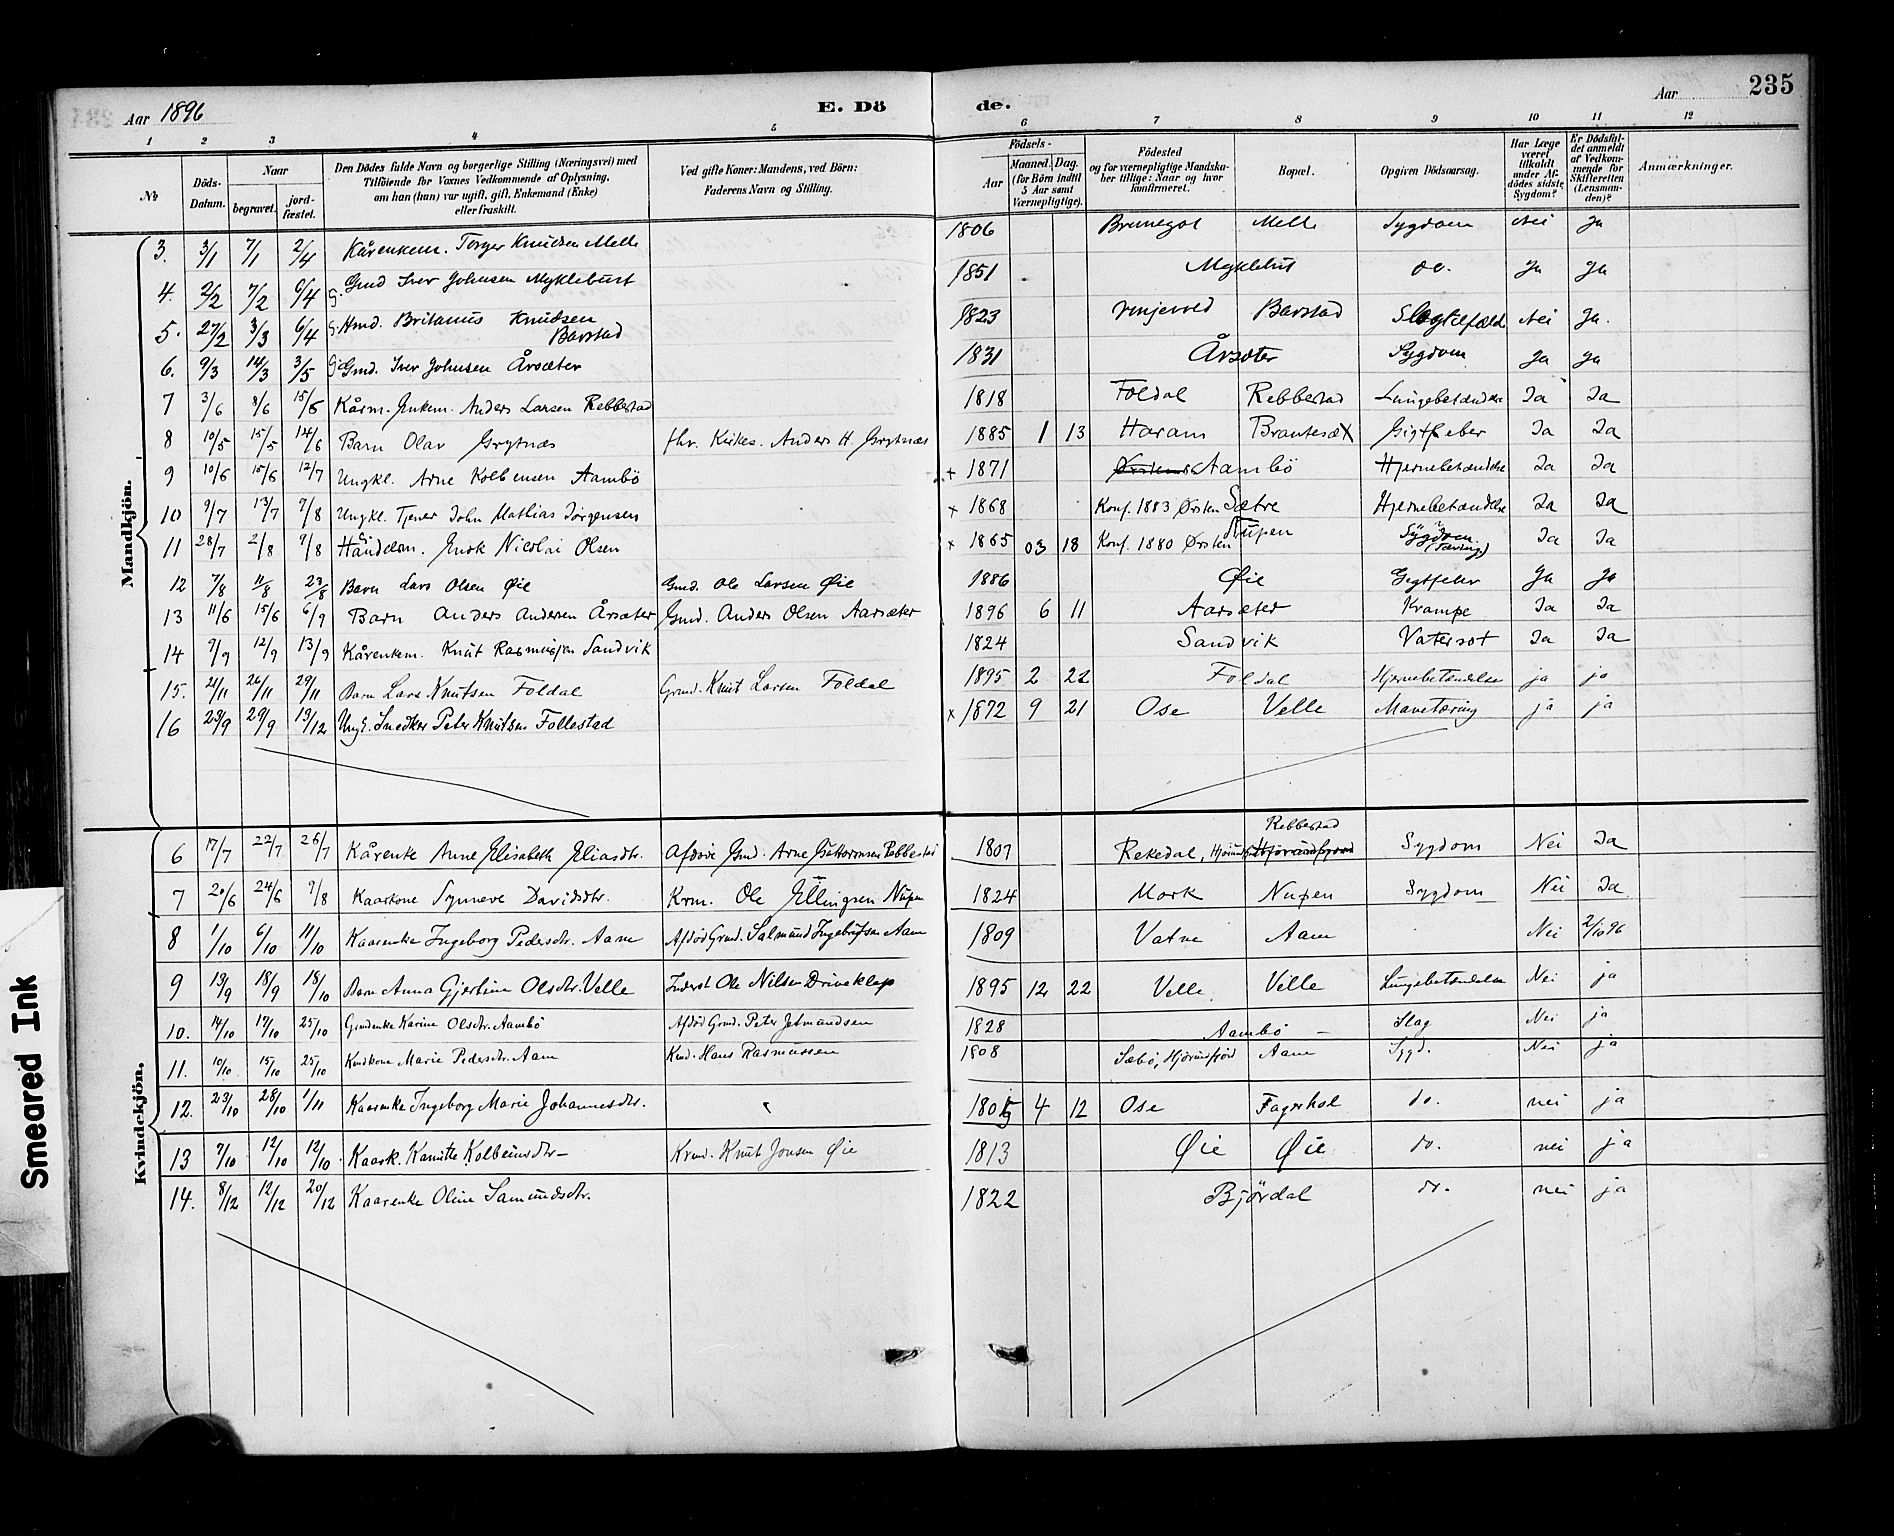 Aar 1896 E. Dö de. Aar 235
1 2 3 4 5 6 7 8 9 10 11 12
№ Döds-Datum. Naar begravet. jordfæstet. Den Dödes fulde Navn og borgerlige Stilling (Næringsvei) med Tilföiende for Voxnes Vedkommende af Oplysning, om han (hun) var ugift, gift, Enkemand (Enke) eller fraskilt. Ved gifte Koner: Mandens, ved Börn: Faderens Navn og Stilling. Födsels- Aar Maaned. Dag. (for Börn indtil 5 Aar samt Værnepligtige). Födested og for værnepligtige Mandskaber tillige: Naar og hvor konfirmeret. Bopæl. Opgiven Dödsaarsag. Har Læge været tilkaldt under Afdödes sidste Sygdom? Er Dödsfaldet anmeldt af Vedkommende for Skifteretten (Lensmanden)? Anmærkninger.
Mandkjön.
3. 3/1 7/1 2/4 Kårenkem. Torger Knudsen Melle 1806 Brunegot Melle Sygdom Nei Ja
4. 2/2 7/2 6/4 G. Gmd Iver Johnsen Myklebust 1851 Myklebust do. Ja Ja
5. 27/2 3/3 6/4 G. Hmd. Britanus Knudsen Barstad 1823 Barstad Slagtilfælde Nei Ja.
6. 9/3 14/3 3/5 G. Gmd. Iver Johnsen Årsæter 1831 Årsæter Sygdom Ja Ja
7 3/6 8/6 15/6 Kårm. Enkem. Anders Larsen Rebbestad 1818 Foldal Rebbestad Lungebetændelse Ja Ja
8 10/5 15/5 14/6 Barn Olav Grytnæs fhv. Kirkes. Anders H. Grytnæs 1885 1 13 Haram Brautesæt Gigtfeber Ja Ja
9 10/6 15/6 12/7 Ungkl. Arne Kolbensen Aambö + 1871 Aambö Hjernebetændelse Ja Ja
10 9/7 13/7 9/8 Ungkl. Tjener John Mathias Jörgensen x 1868 Konf. 1883 Ørsten Sætre Hjernebetændelse Ja Ja
11 28/7 2/8 9/8 Håndelsm. Enok Nicolai Olsen x 1865 03 18 Konf. 1880 Ørsten Nupen Sygdom (Tæring) Ja Ja
12 7/8 11/8 23/8 Barn Lars Olsen Øie Gmd. Ole Larsen Øie 1886 Øie Gigtfeber Ja Ja
13 11/6 15/6 6/9 Barn Anders Andersen Årsæter Gmd. Anders Olsen Aarsæter 1896 6 11 Aarsæter Krampe Ja Ja
14 9/9 12/9 13/9 Kårenkem. Knut Rasmussen Sandvik 1824 Sandvik Vatersot Ja Ja
15. 21/11 26/11 29/11 Barn Lars Knutsen Foldal Grmd. Knut Larsen Foldal 1895 2 22 Foldal Hjernebetændelse ja ja
16 23/9 29/9 13/12 Ungk. Snedker Peter Knutsen Follestad x 1872 9 21 Ose Velle Mavetæring ja ja
Kvindekjön.
6 17/7 22/7 26/7 Kårenke Anne Elisabeth Eliasdtr. Afdöde Gmd. Arne Guttormsen Rebbestad 1807 Rekedal, Rebbestad Sygdom Nei Ja
7 20/6 24/6 9/8 Kaarkone Synneve Davidsdtr. Krm. Ole Ellingsen Nupen 1824 Mork Nupen Sygdom Nei Ja
8 1/10 6/10 11/10 Kaarenke Ingeborg Pedersdtr. Aam Afdöd Grmd. Salmund Ingebrigtsen Aam 1809 Vatne Aam Nei 2/10 96
9 13/9 18/9 18/10 Barn Anna Gjertine Olsdtr. Velle Inderst Ole Nilsen Driveklep 1895 12 22 Velle Velle Lungebetændelse Nei ja
10. 14/10 19/10 25/10 Gmdenke Karine Olsdtr. Aambö Afdöd Grmd. Peter Jetmundsen 1828 Aambö – Slag Nei ja
11. 10/10 15/10 25/10 Kmdkone Marie Pedersdtr. Aam Kmd. Hans Rasmussen 1808 Sæbö, Hjörundfjord Aam Sygd. Nei ja
12. 23/10 28/10 1/11 Kaarenke Ingeborg Marie Johannesdtr. 1805 4 12 Ose Fagerhol do. nei ja
13 7/10 12/10 12/10 Kaark. Kanutte Kolbeinsdtr– Krmd. Knut Jonsen Øie 1813 Øie Øie do. nei ja
14. 8/12 12/12 20/12 Kaarenke Oline Samundsdtr. 1822 Björdal do. nei ja
Smeared Ink